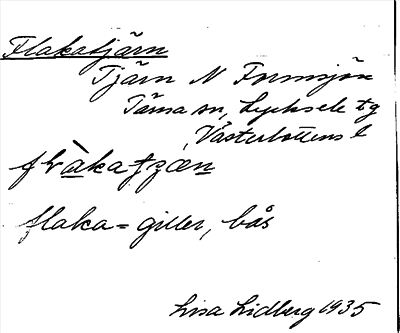 Flakatjärn
Tjärn N Formsjön
Tärna sn, Lycksele tg
Västerbottens l
flaka = giller, bås
Lisa Lidberg 1935